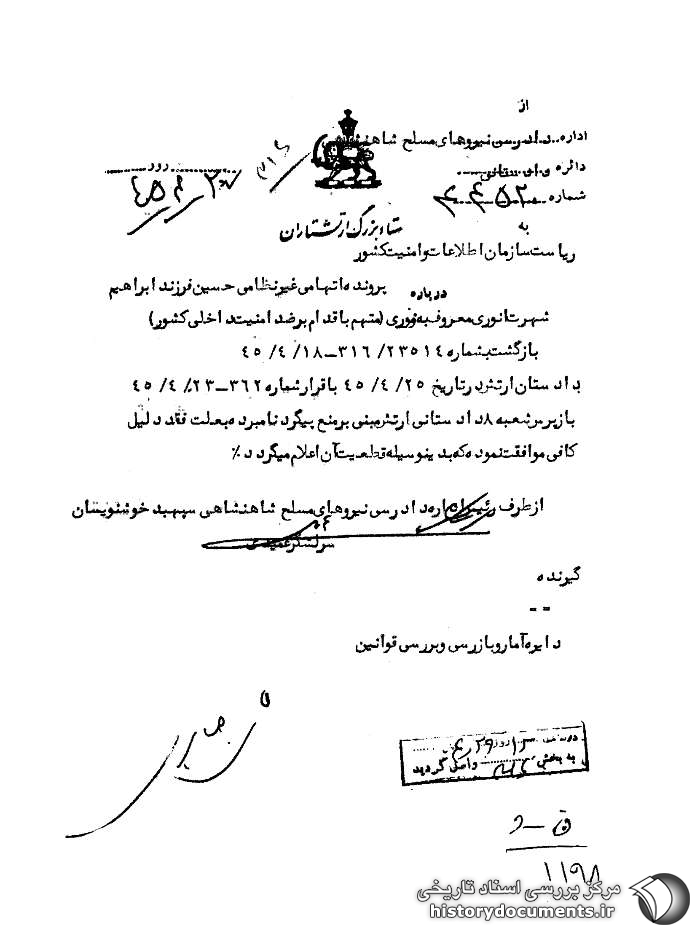 از
اداره دادرسی نیروهای مسلح شاهنشاهی
دائره دادستانی
شماره ۴۴۵۲
روز
۳۱۶
ستاد بزرگ ارتشتاران
به
ریاست سازمان اطلاعات و امنیت کشور
درباره پرونده اتهامی غیرنظامی حسین فرزند ابراهیم
شهرت انوری معروف به نوری (متهم باقدام برضد امنیت داخلی کشور)
بازگشت بشماره ۲۳۵۱۴/ ۳۱۶ـ۱۸/ ۴/ ۴۵
دادستان ارتش در تاریخ ۲۵/ ۴/ ۴۵ با قرار شماره ۳۶۲ـ۲۳/ ۴/ ۴۵
بازپرس شعبه ۸ دادستانی ارتش مبنی بر منع پیگرد نامبرده بعلت فقد دلیل
کافی موافقت نموده که بدینوسیله قطعیت آن اعلام میگردد ٪
از طرف رئیس اداره دادرسی نیروهای مسلح شاهنشاهی سپهبد خوشنویسان
سرلشگر عمیدی
گیرنده
= =
دایره آمار و بازرسی و بررسی قوانین
روز ۲۹
به بخش ۳۱۶ واصل گردید
ق – د
۱۱۹۸
مرکز بررسی اسناد تاریخی
historydocuments.ir